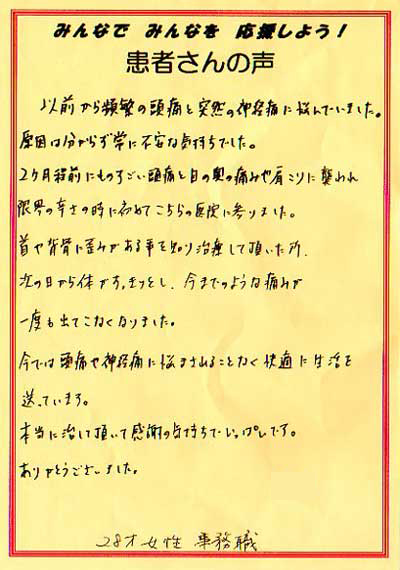 みんなで みんなを 応援しよう!
患者さんの声
以前から頻繁の頭痛と突然の神経痛に悩んでいました。
原因は分からず常に不安な気持ちでした。
2ヶ月程前にものすごい頭痛と目の奥の痛みや肩こりに襲われ
限界の辛さの時に初めてこちらの医院に参りました。
首や背骨に歪みがある事を知り治療して頂いた所、
次の日から体がすっきっとし、今までのような痛みが
一度も出てこなくなりました。
今では頭痛や神経痛に悩まされることなく快適に生活を
送っています。
本当に治して頂いて感謝の気持ちでいっぱいです。
ありがとうございました。
28才 女性 事務職